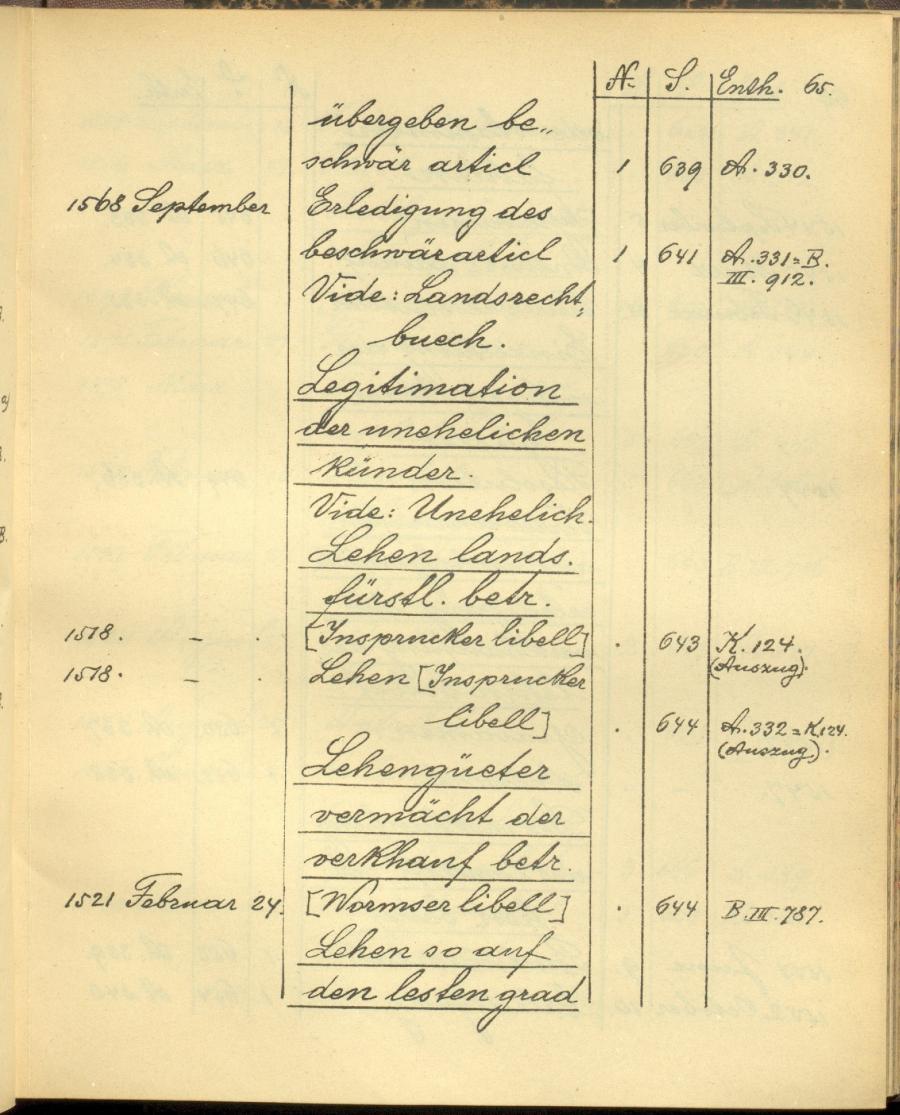 N. S. Enth. 65.
übergeben be„
schwär articl 1 639 A. 330.
1568 September Erledigung des
beschwärarticl 1 641 A. 331=B.
III. 912.
Vide: Landsrecht„
buech.
Legitimation
der unehelichen
künder.
Vide: Unehelich.
Lehen lands.
fürstl. betr.
1518. – . [Insprucker libell] . 643 K. 124.
(Auszug).
1518. – . Lehen [Insprucker
libell] . 644 A. 332=K.124.
(Auszug).
Lehengüeter
vermächt der
verkhauf betr.
1521 Februar 24. [Wormser libell] . 644 B.III.787.
Lehen so auf
den lesten grad